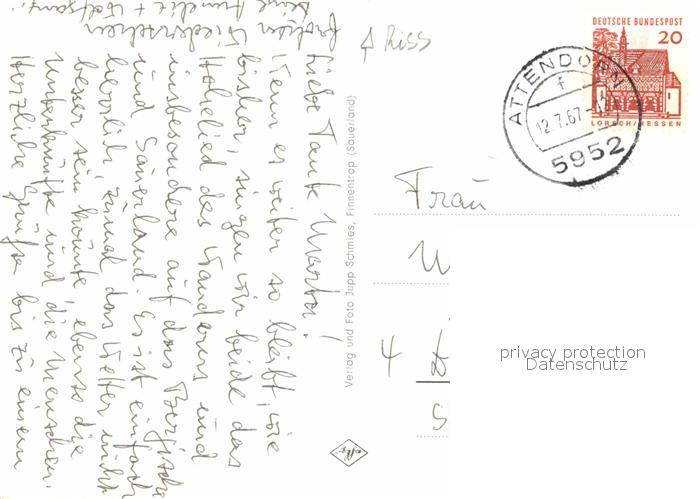 Liebe Tante Marta!
Wenn es weiter so bleibt, wie
bisher, singen wir beide das
Hohelied des Wanderns und
insbesondere auf das Bergische
und Sauerland. Es ist einfach
herrlich, zumal das Wetter nicht
besser sein könnte, ebenso die
Unterkünfte und die Menschen.
Herzliche Grüße bis zu einem
frohen Wiedersehen
Deine + Wolfgang.
Riss
Verlag und Foto Jupp Schmies, Finnentrop (Sauerland)
DEUTSCHE BUNDESPOST
20
LORSCH/HESSEN
ATTENDORN
f
12.7.67
5952
Frau
W
4
privacy protection
Datenschutz